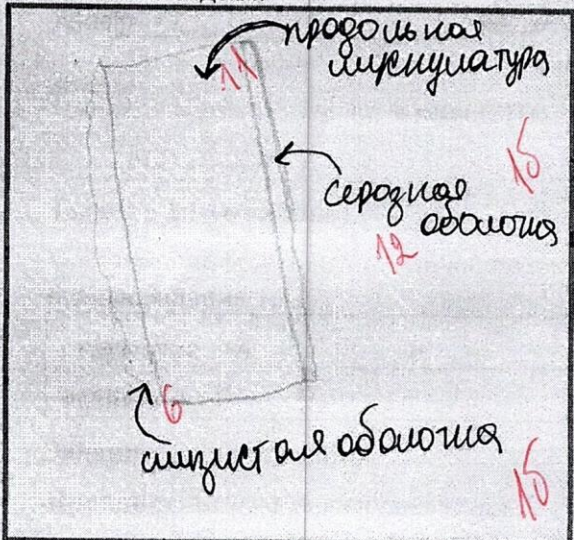 продольная
мускулатура
11
1б
серозная
оболочка
12
6
слизистая оболочка
1б